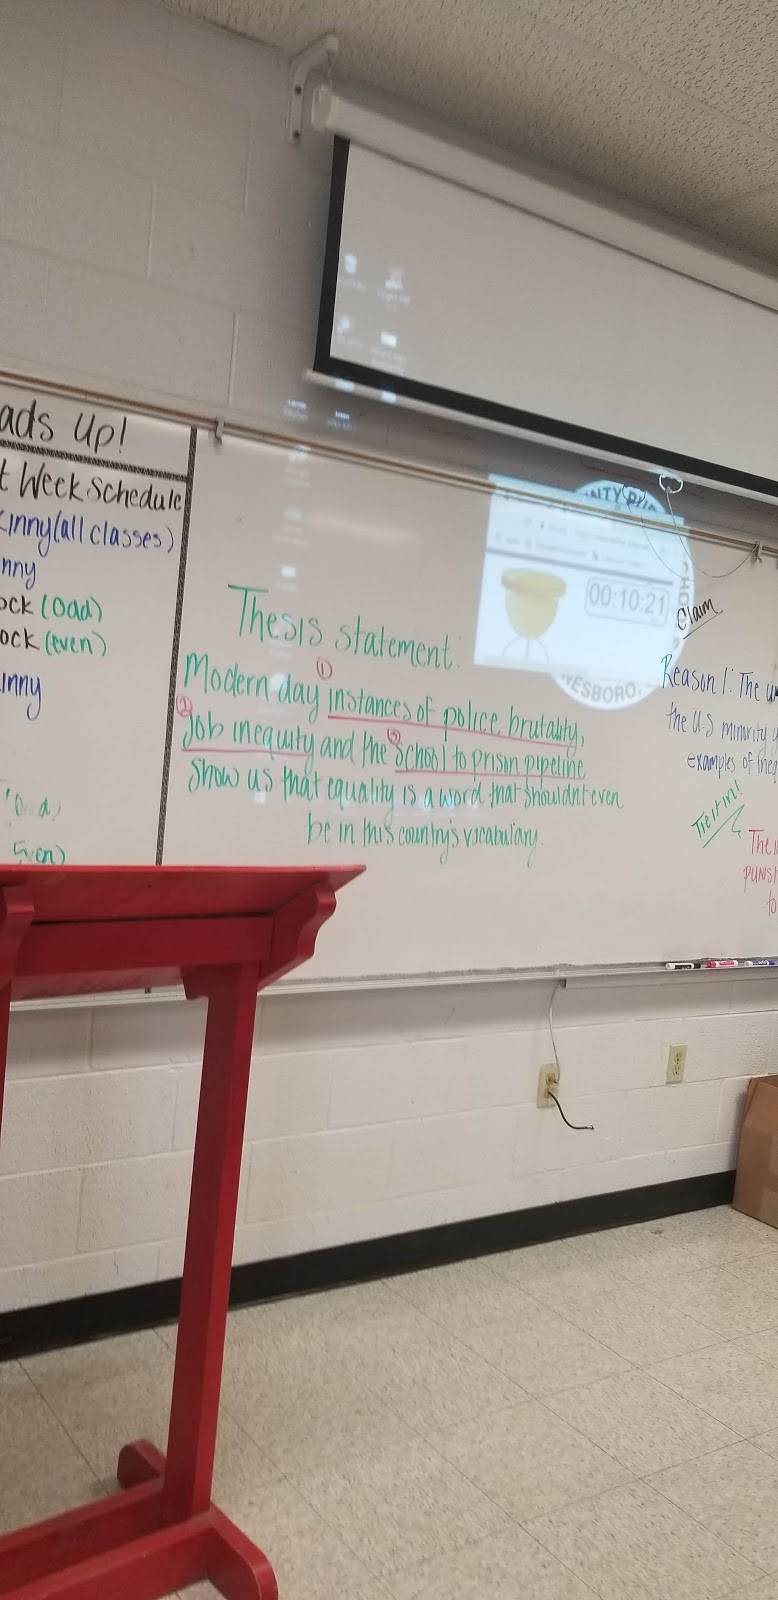 ads Up!
t Week Schedule
inny (all classes)
nny
ock (odd)
ock (even)
inny
Even)
Thesis statement:
①
Modern day instances of police brutality,
②
Job inequity and the school to prison pipeline
③
show us that equality is a word that shouldnt even
be in this country's vocabulary.
NTY PU
00:10:21
ESBORO,
Claim
Reason 1: The u
the U.S minority
examples of ineq
Tie it in!
The
punish
to